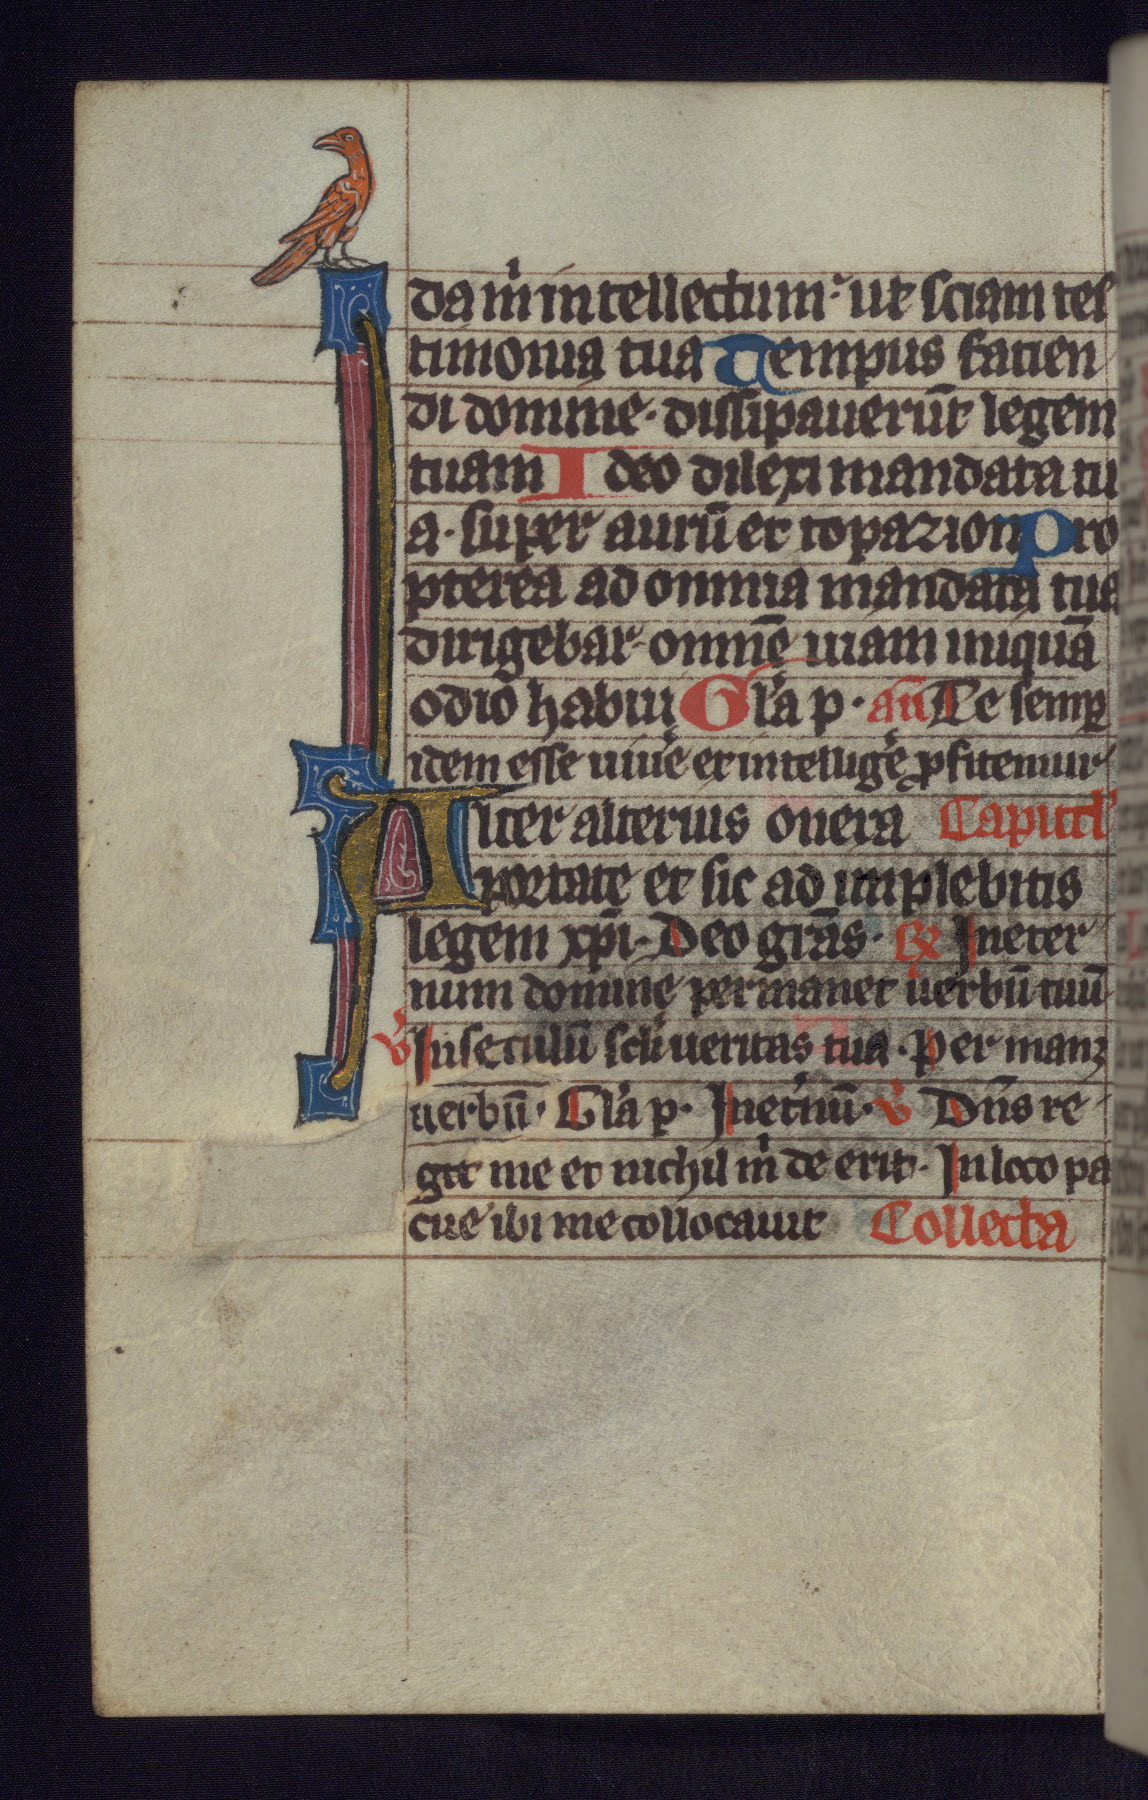 da m̍ intellectum· ut sciam tes
timonia tua Tempus facien
di domine· dissipauerūt legem
tuam Ideo dilexi mandata tu
a· super aurū et topazion Pro
pterea ad omnia mandata tua
dirigebar· omnē uiam iniquā
odio habui Gl'a p· an̄ Te semp
idem esse uiuē et intelligē p̱fitemur
Alter alterius onera Capitl'
portate et sic ad implebitis
legem xp̄i· Deo gr̄as· R Ineter
num domine permanet uerbū tuū
v̍ Inseculū scl'i ueritas tua· Permanꝫ
uerbū· Gl'a p· Inet'nū· v̍ Dn̄s re
git me et nichil m̍ de erit· In loco pa
scue ibi me collocauit Collecta